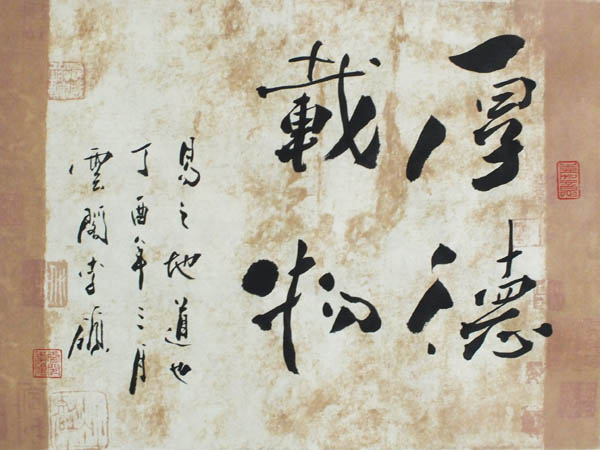 厚德
載物
易之地道也
丁酉年三月
雲閣李領